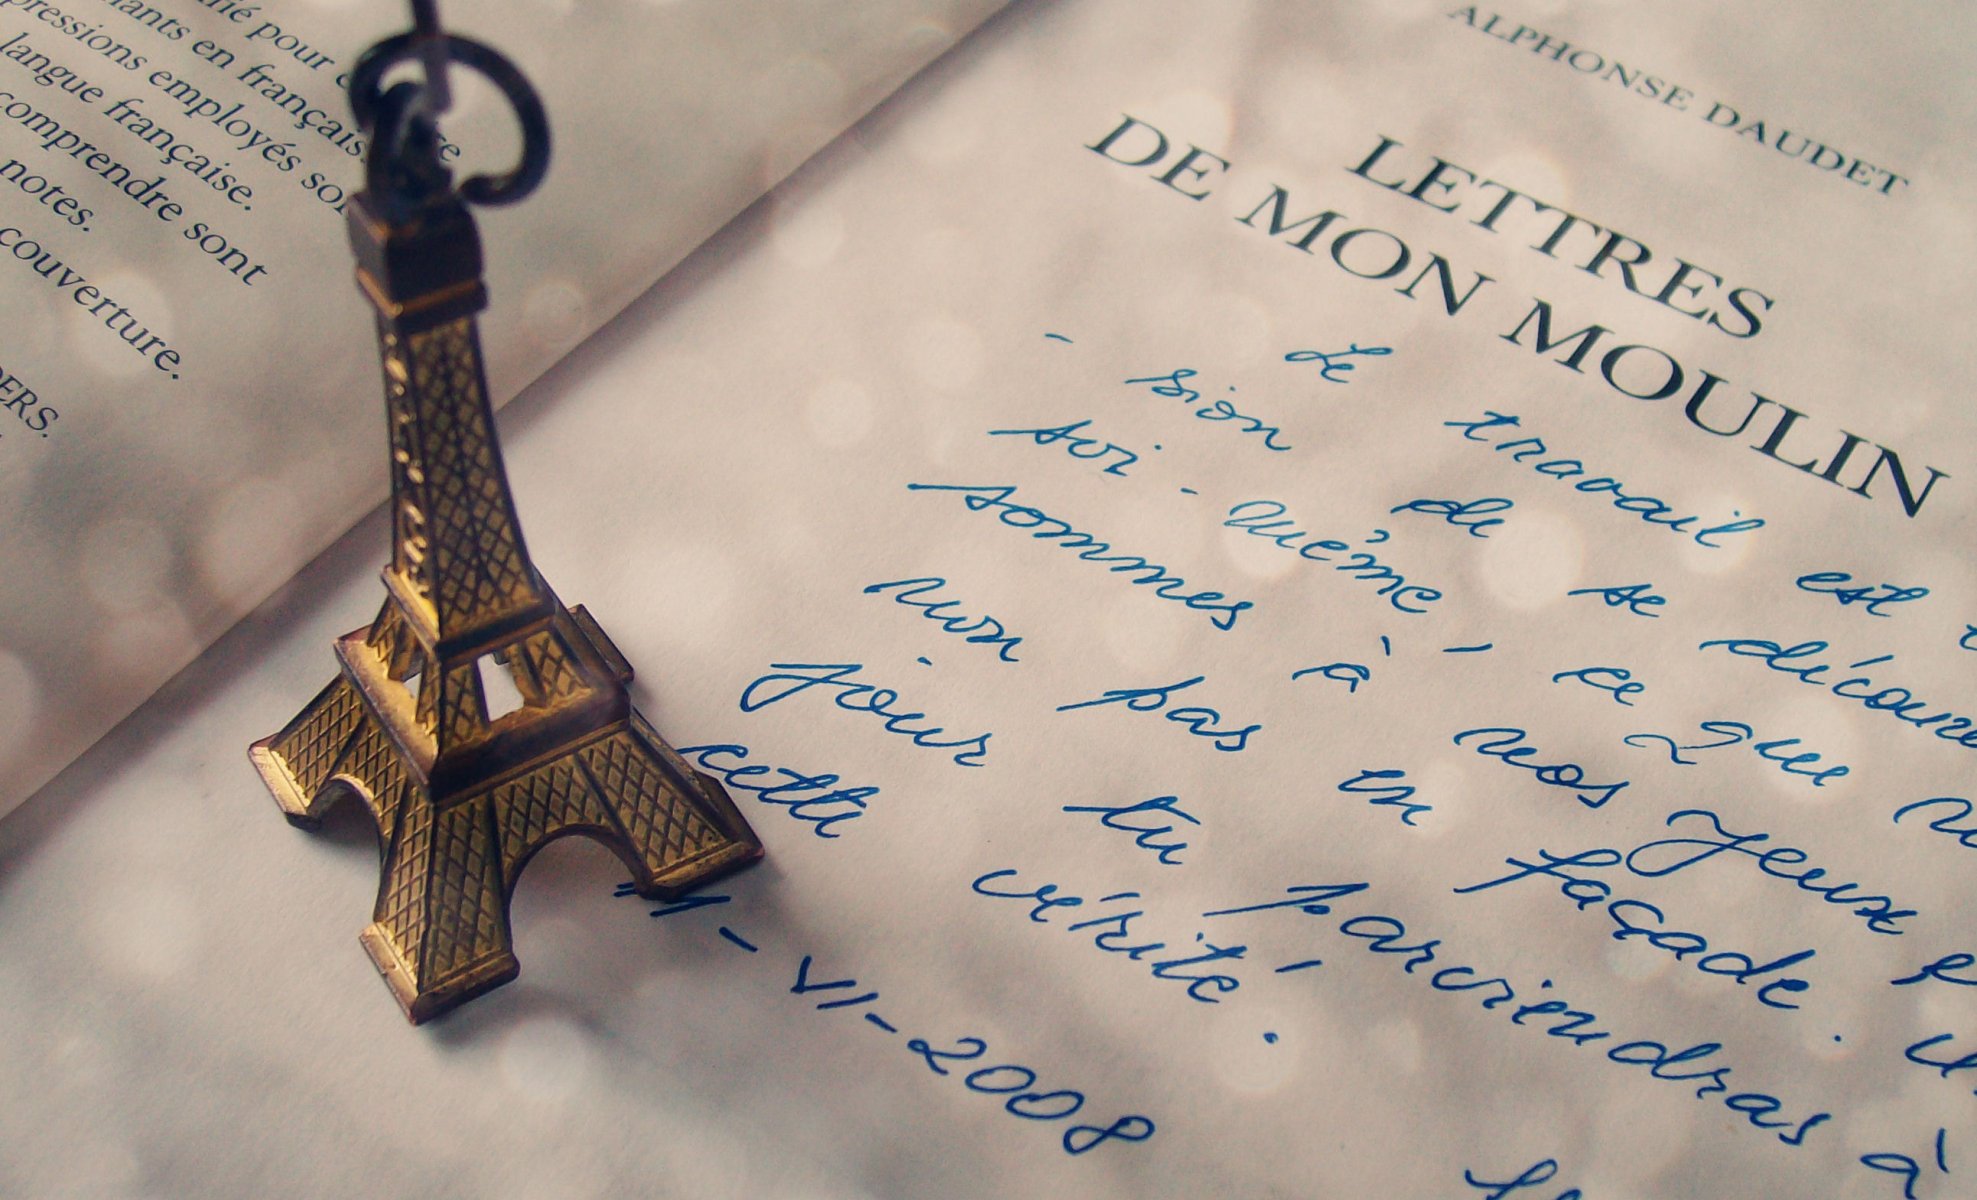 pour
en français.
expressions employés
langue française.
comprendre sont
notes.
couverture.
ALPHONSE DAUDET
LETTRES
DE MON MOULIN
Le travail est
- sion de se
soi-même, ce que
sommes à nos yeux
non pas en façade.
jour tu parviendras à
cette vérité.
VII-2008